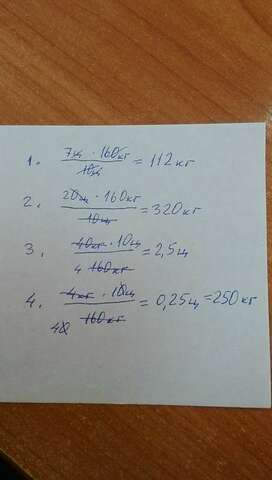 1. 7ц · 160кг / 10ц = 112кг
2. 20ц · 160кг / 10ц = 320кг
3. 40кг · 10ц / 4 160кг = 2,5ц
4. 4кг · 10ц / 40 160кг = 0,25ц = 250кг